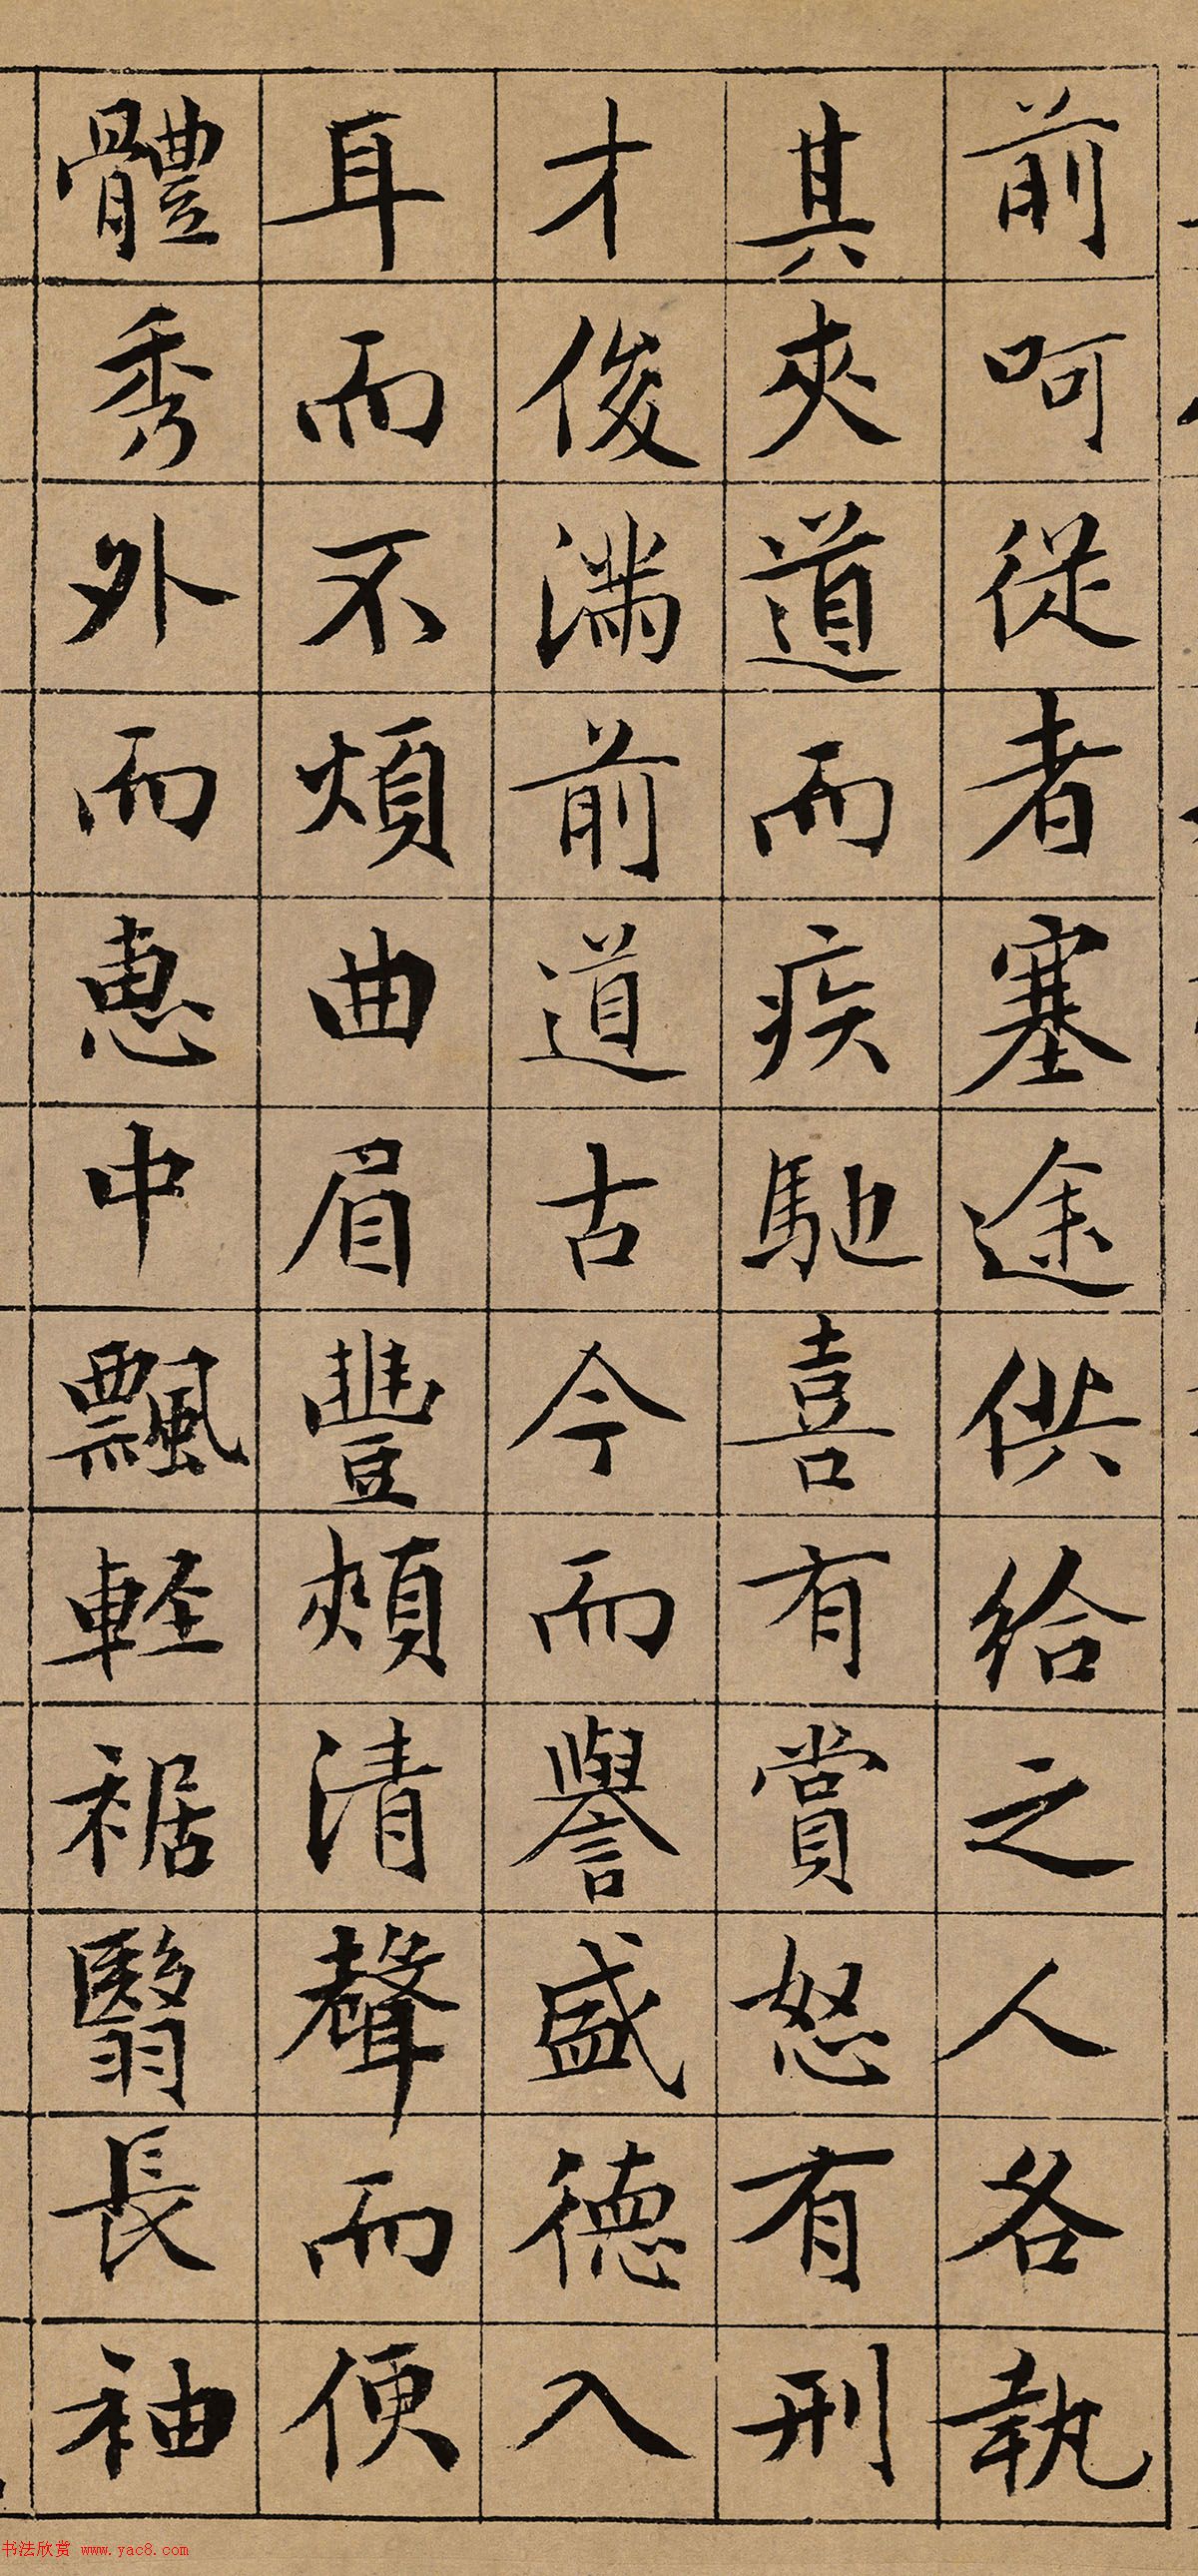 前呵從者塞途供給之人各執
其夾道而疾馳喜有賞怒有刑
才俊滿前道古今而譽盛德入
耳而不煩曲眉豐頰清聲而便
體秀外而惠中飄輕裾翳長袖
书法欣赏 www.yac8.com